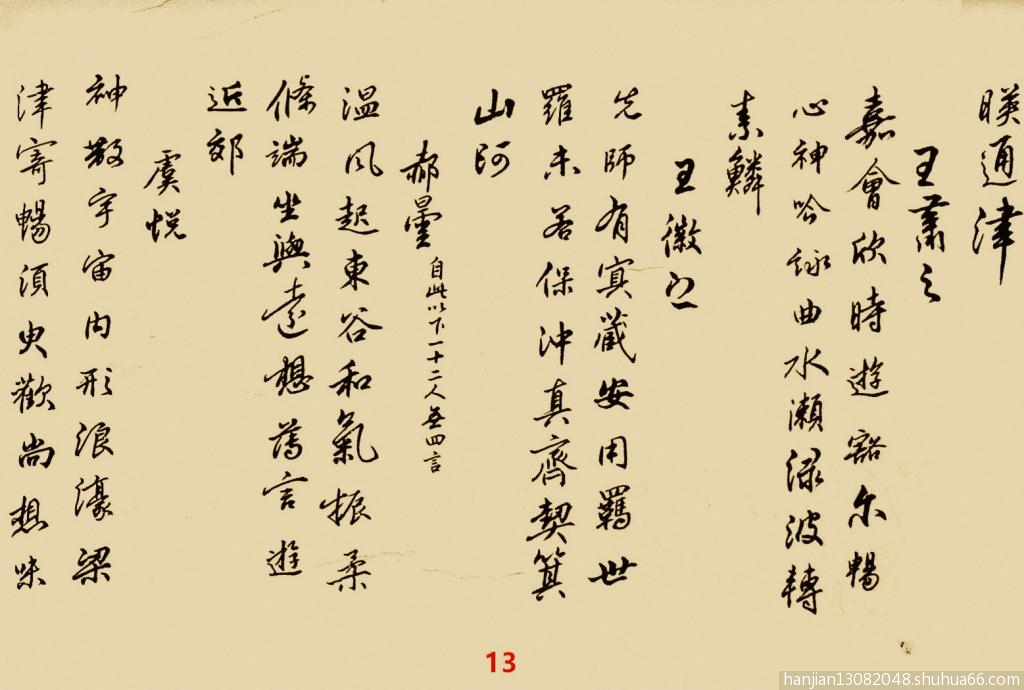 暎通津
王肅之
嘉會欣時遊豁尔暢
心神吟詠曲水瀨渌波轉
素鱗
王徽之
先師有冥藏安用羈世
羅未若保沖真齊契箕
山阿
郗曇 自此以下一十二人無四言
温風起東谷和氣振柔
條端坐興遠想薄言遊
近郊
虞悦
神散宇宙内形浪濠梁
津寄暢須臾歡尚想味
13
hanjian13082048.shuhua66.com